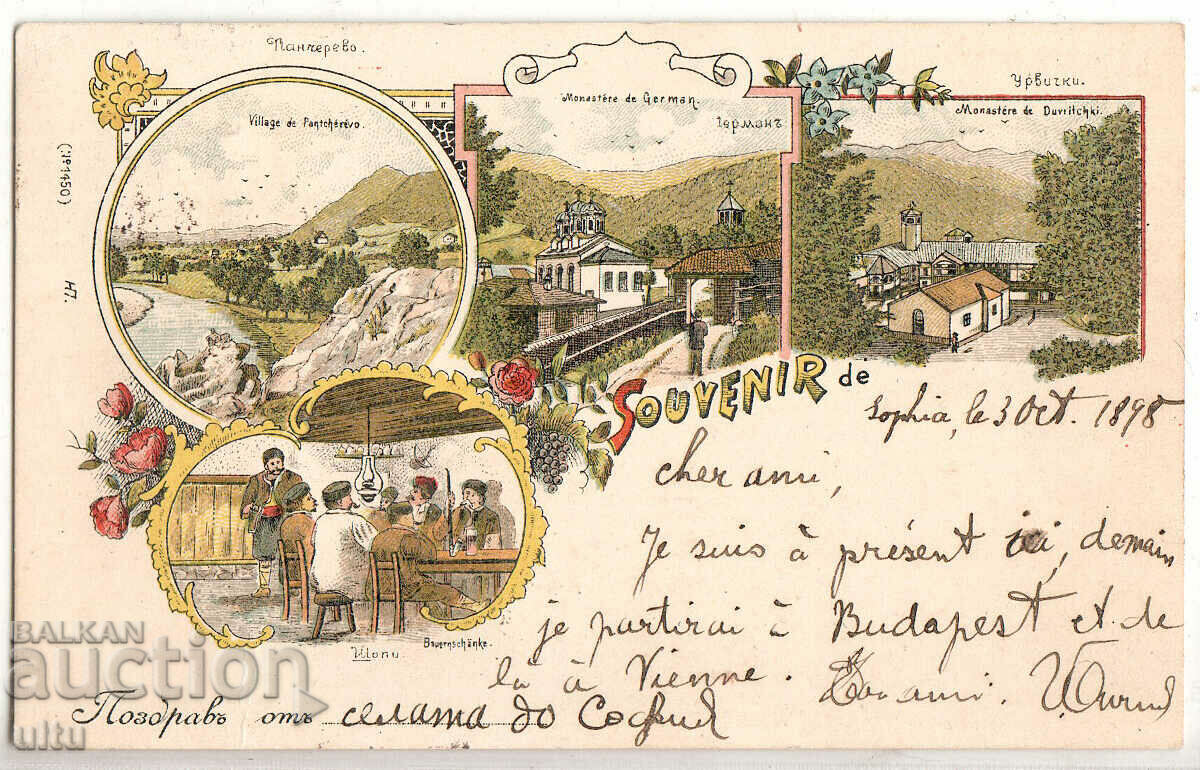 Панчерево.
Village de Pantchérévo.
Monastère de German.
Германъ
Урвички.
Monastère de Duvritchki.
(No 1450)
H7.
SOUVENIR de
Sophia, le 3 Oct. 1898
cher ami,
Je suis à présent ici, demain
je partirai à Budapest et de
là à Vienne. ami.
Шопи.
Bauernschänke.
Поздравъ отъ селата до София
BALKAN
auction
ultu